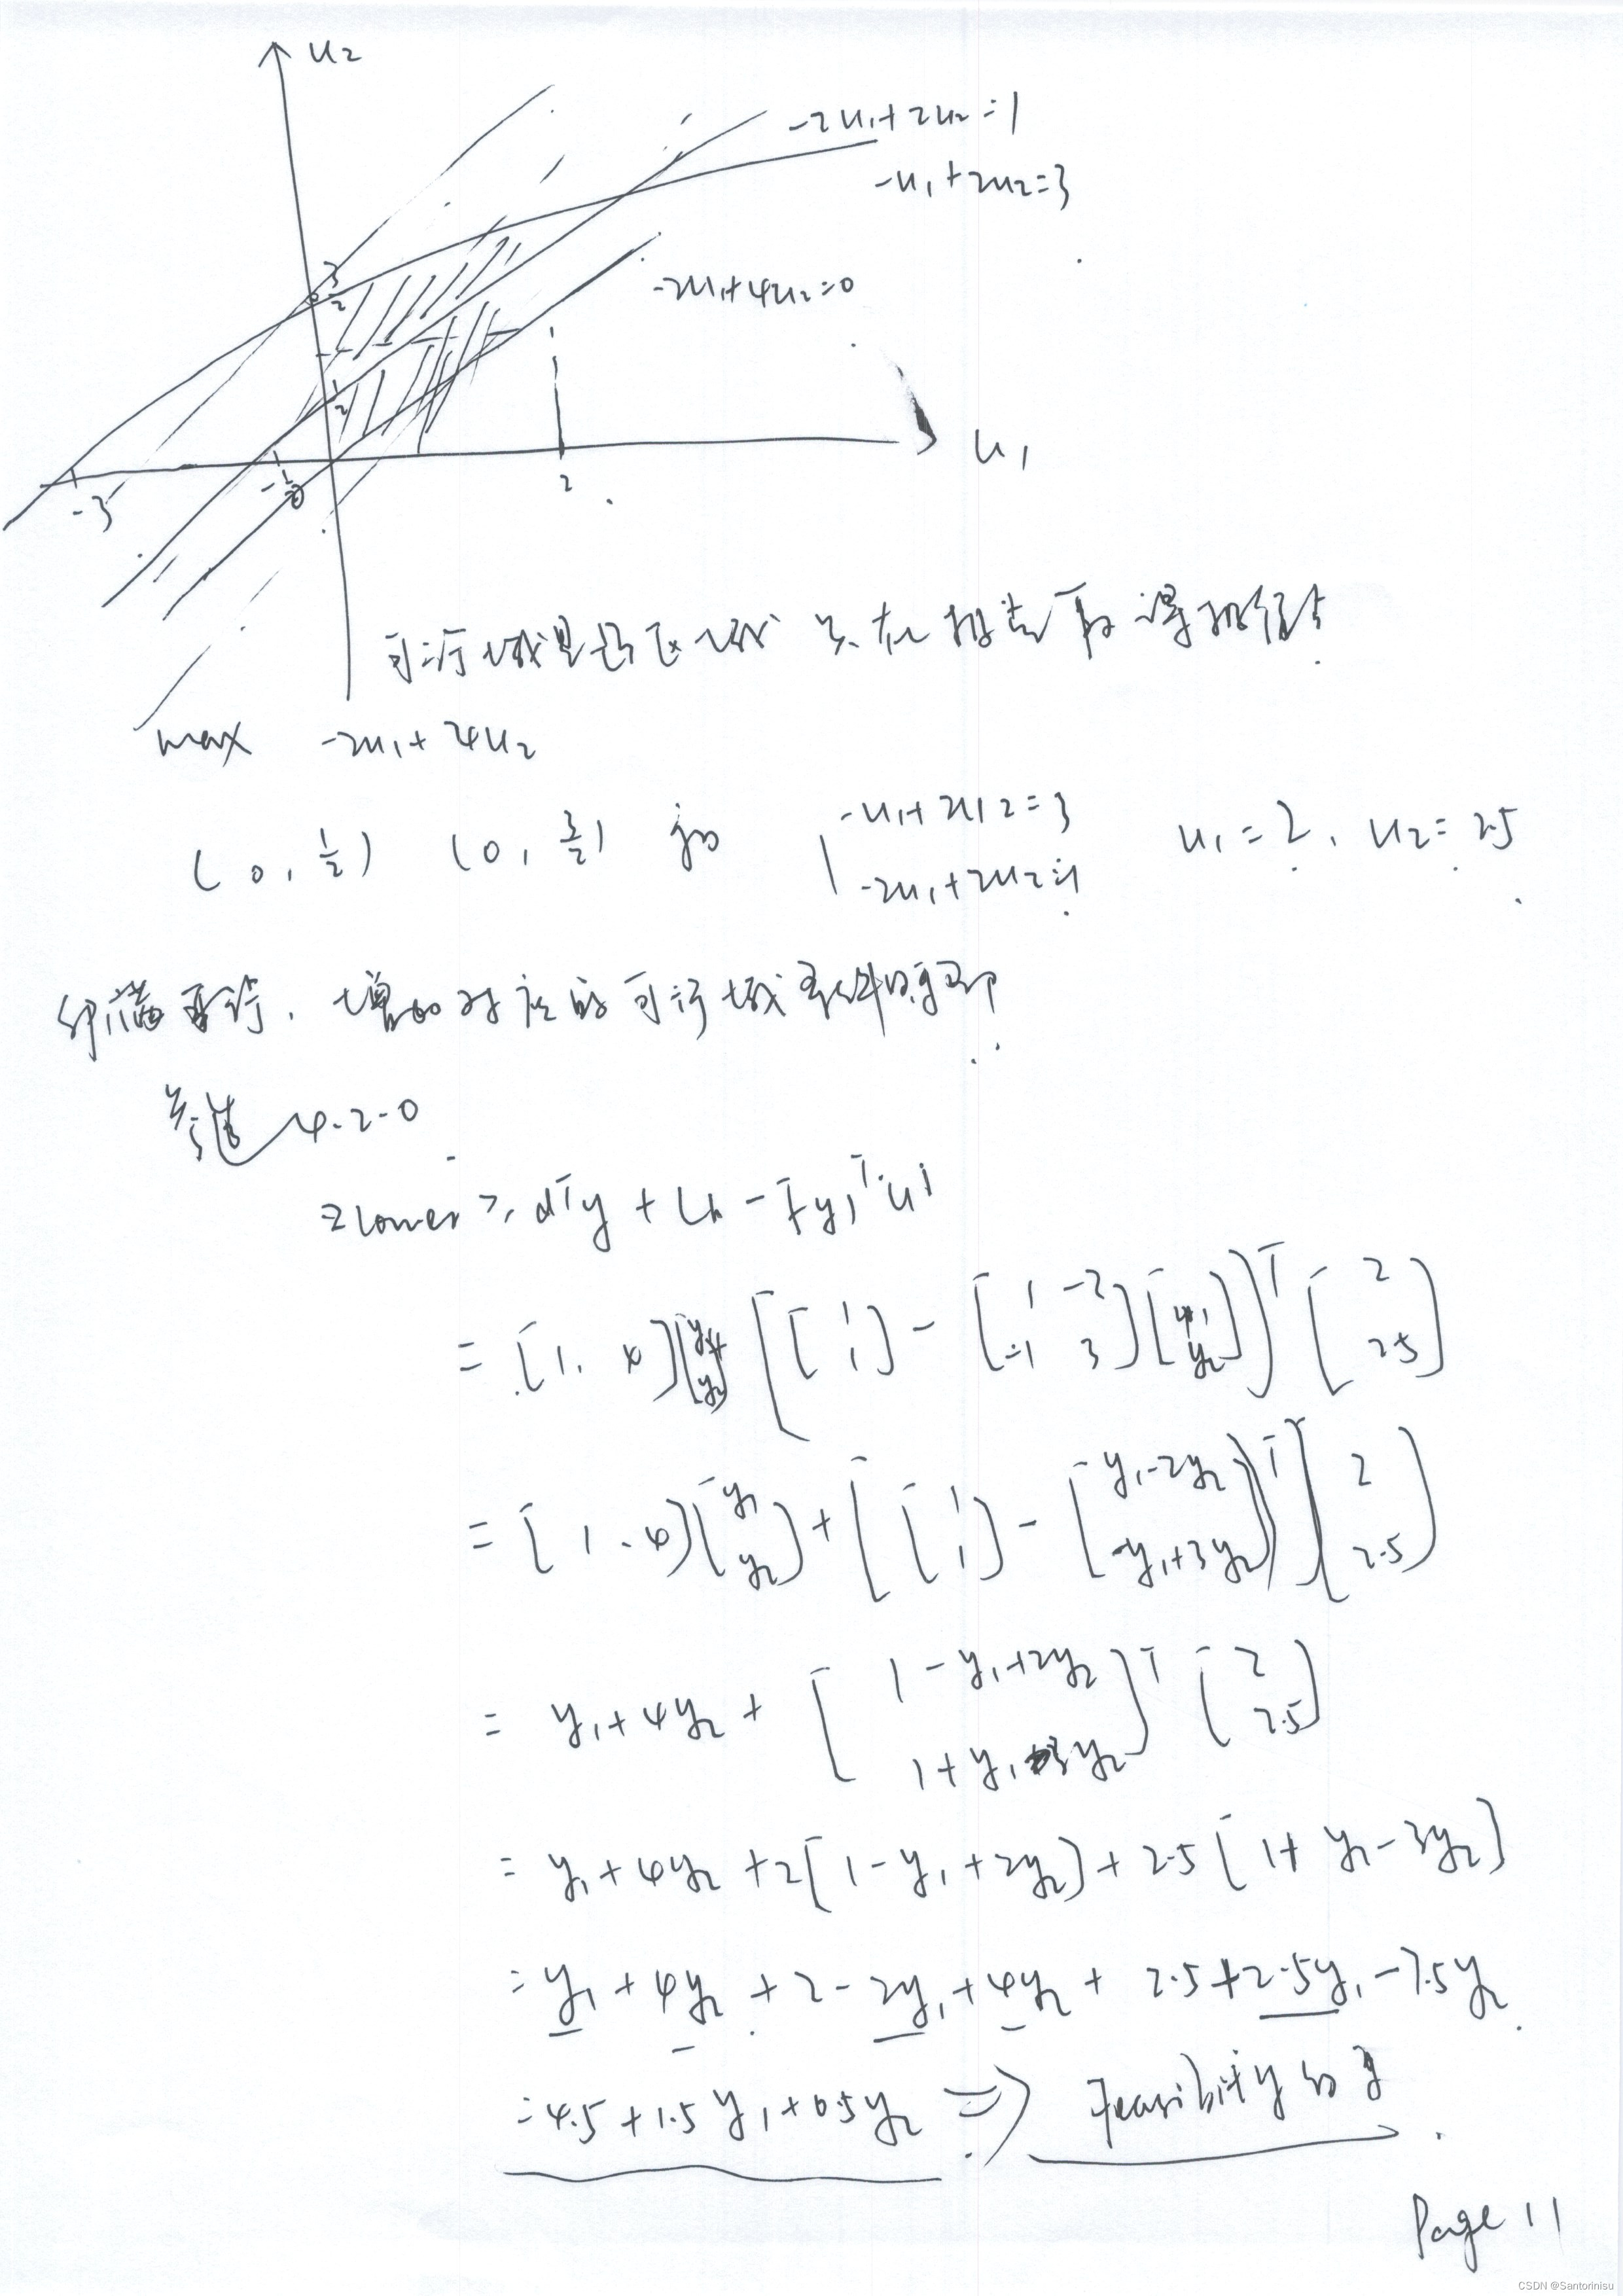 u2
-2u1+2u2=1
-u1+2u2=3
-2u1+4u2=0
3
2
1
2
-3
2
u1
可行域是凸区域 只在极点取得极值
max -2u1+4u2
(0, 1/2) (0, 3/2) 和 { -u1+2u2=3 u1=2, u2=2.5
-2u1+2u2=1
增加对应的可行域条件即可
4.2-0
zlower ≥ dᵀy + (h - Fy)ᵀuʲ
= [1, 4][y1 y2] [[1 1] - [1 -2 -1 3][y1 y2]]ᵀ [2 2.5]
= [1, 4][y1 y2] + [[1 1] - [y1-2y2 -y1+3y2]]ᵀ [2 2.5]
= y1+4y2 + [1-y1+2y2 1+y1-3y2]ᵀ [2 2.5]
= y1+4y2 +2[1-y1+2y2] + 2.5[1+y1-3y2]
= y1+4y2+2-2y1+4y2+2.5+2.5y1-7.5y2
=4.5+1.5y1+0.5y2 ⇒ feasibity
Page 11
CSDN @Santorinisu